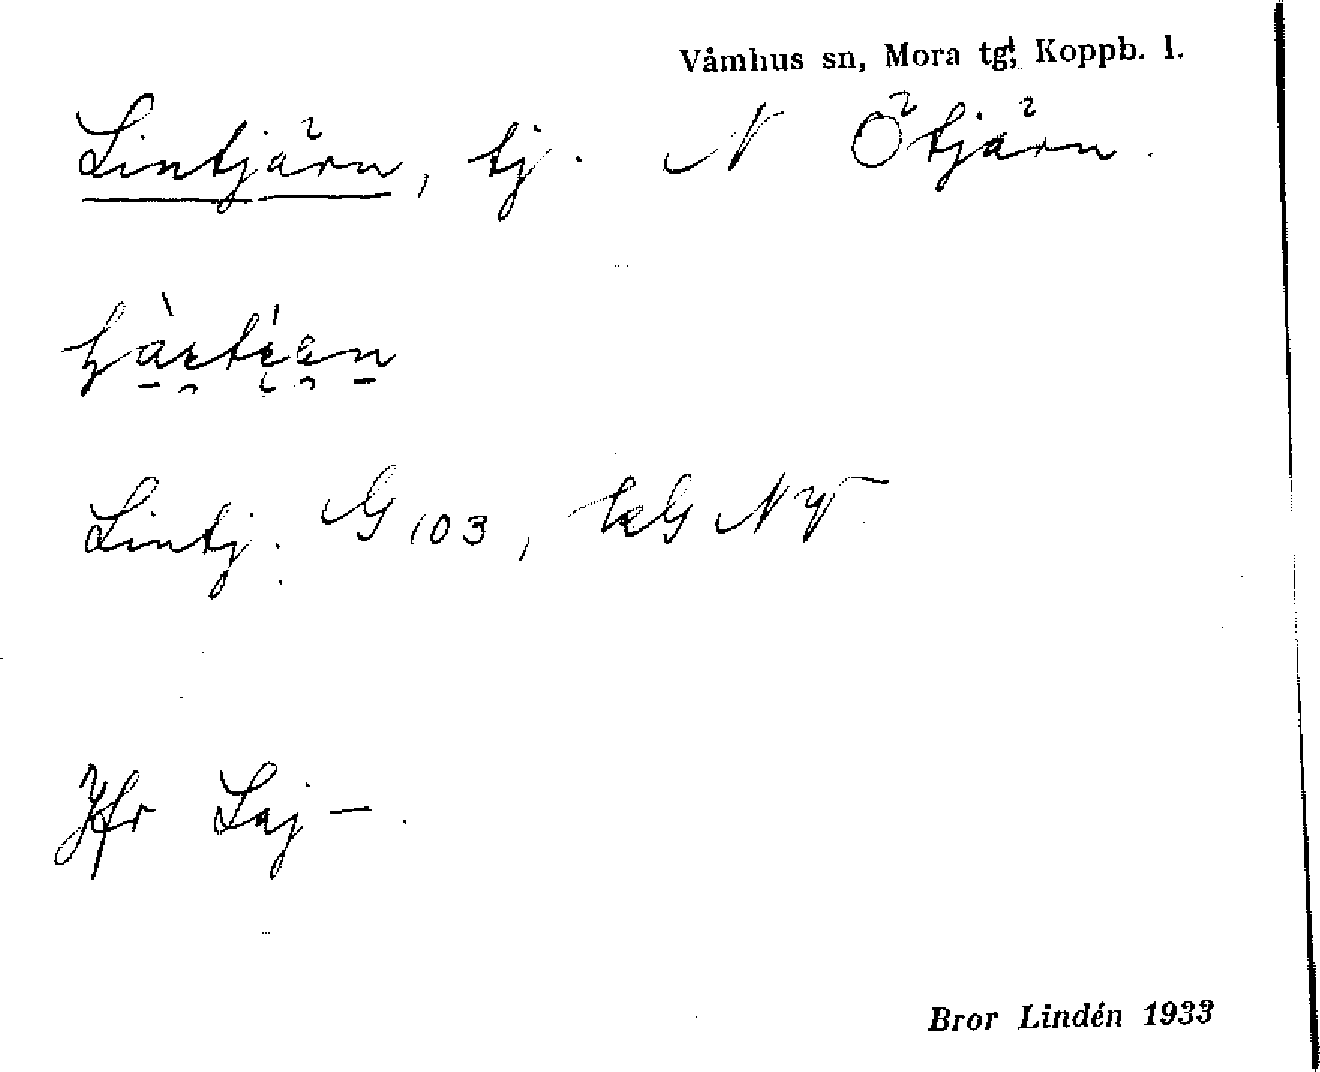 Våmhus sn, Mora tgt, Koppb. l.
Lintjärn, tj. N Ötjärn.
Lintj. G 103, NV
Jfr Laj-.
Bror Lindén 1933